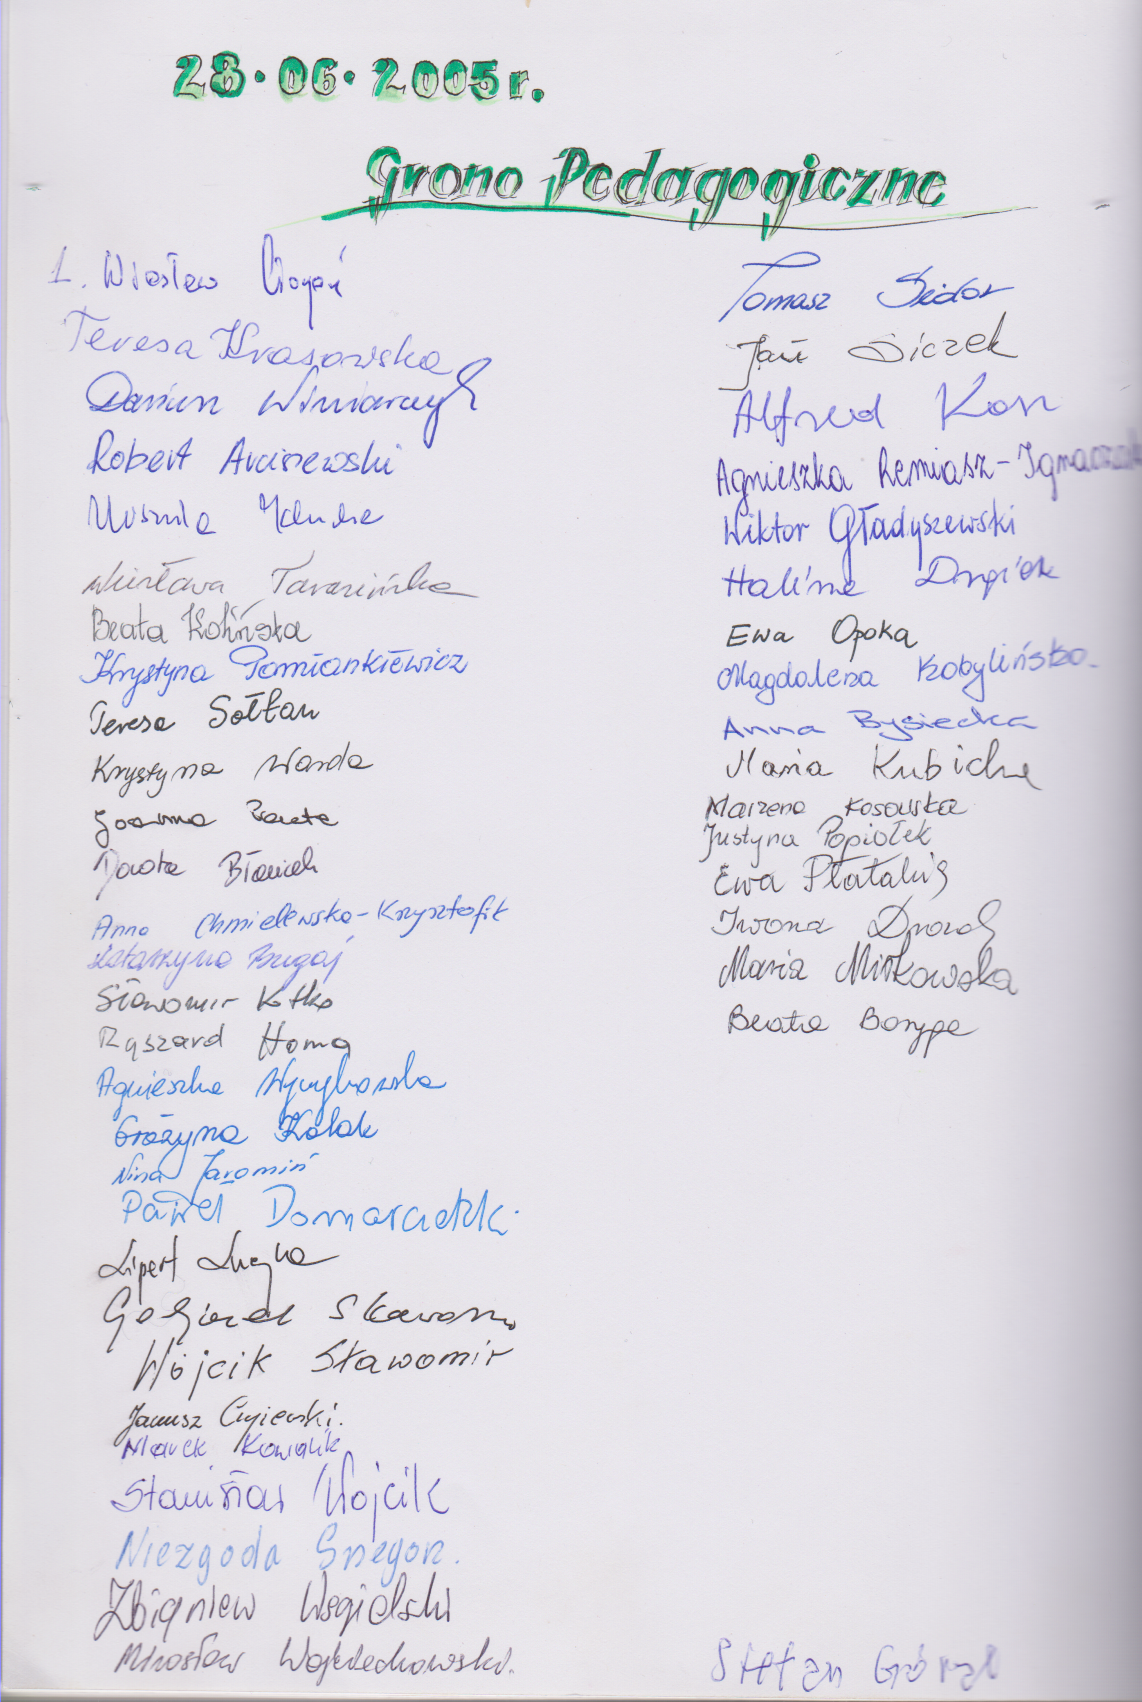 28.06.2005r.
Grono Pedagogiczne
1. Wiesław
Teresa Krasowska
Dariusz Winiarczyk
Robert Arciszewski
Urszula
Wiesława Tarasińska
Beata Kolińska
Krystyna Pomiankiewicz
Teresa Sołtan
Krystyna Warda
Joanna
Dorota
Anna Chmielewska-Krzysztofik
Katarzyna Bugaj
Sławomir Kotko
Ryszard Homa
Agnieszka
Grażyna Kołak
Nina Jaromin
Paweł Domaradzki
Lipert
Wójcik Sławomir
Janusz
Marek Kowalik
Stanisław Wójcik
Niezgoda Grzegorz.
Zbigniew Węgielski
Mirosław Wojciechowski.
Tomasz Sidor
Jan Siczek
Alfred Kon
Agnieszka Remiasz-Ignaczak
Wiktor Gładyszewski
Halina
Ewa Opoka
Magdalena Kobylińska
Anna Bysiecka
Maria Kubicka
Marzena Kosowska
Justyna Popiołek
Ewa Płatakis
Iwona Drozd
Maria Mirkowska
Beata
Stefan